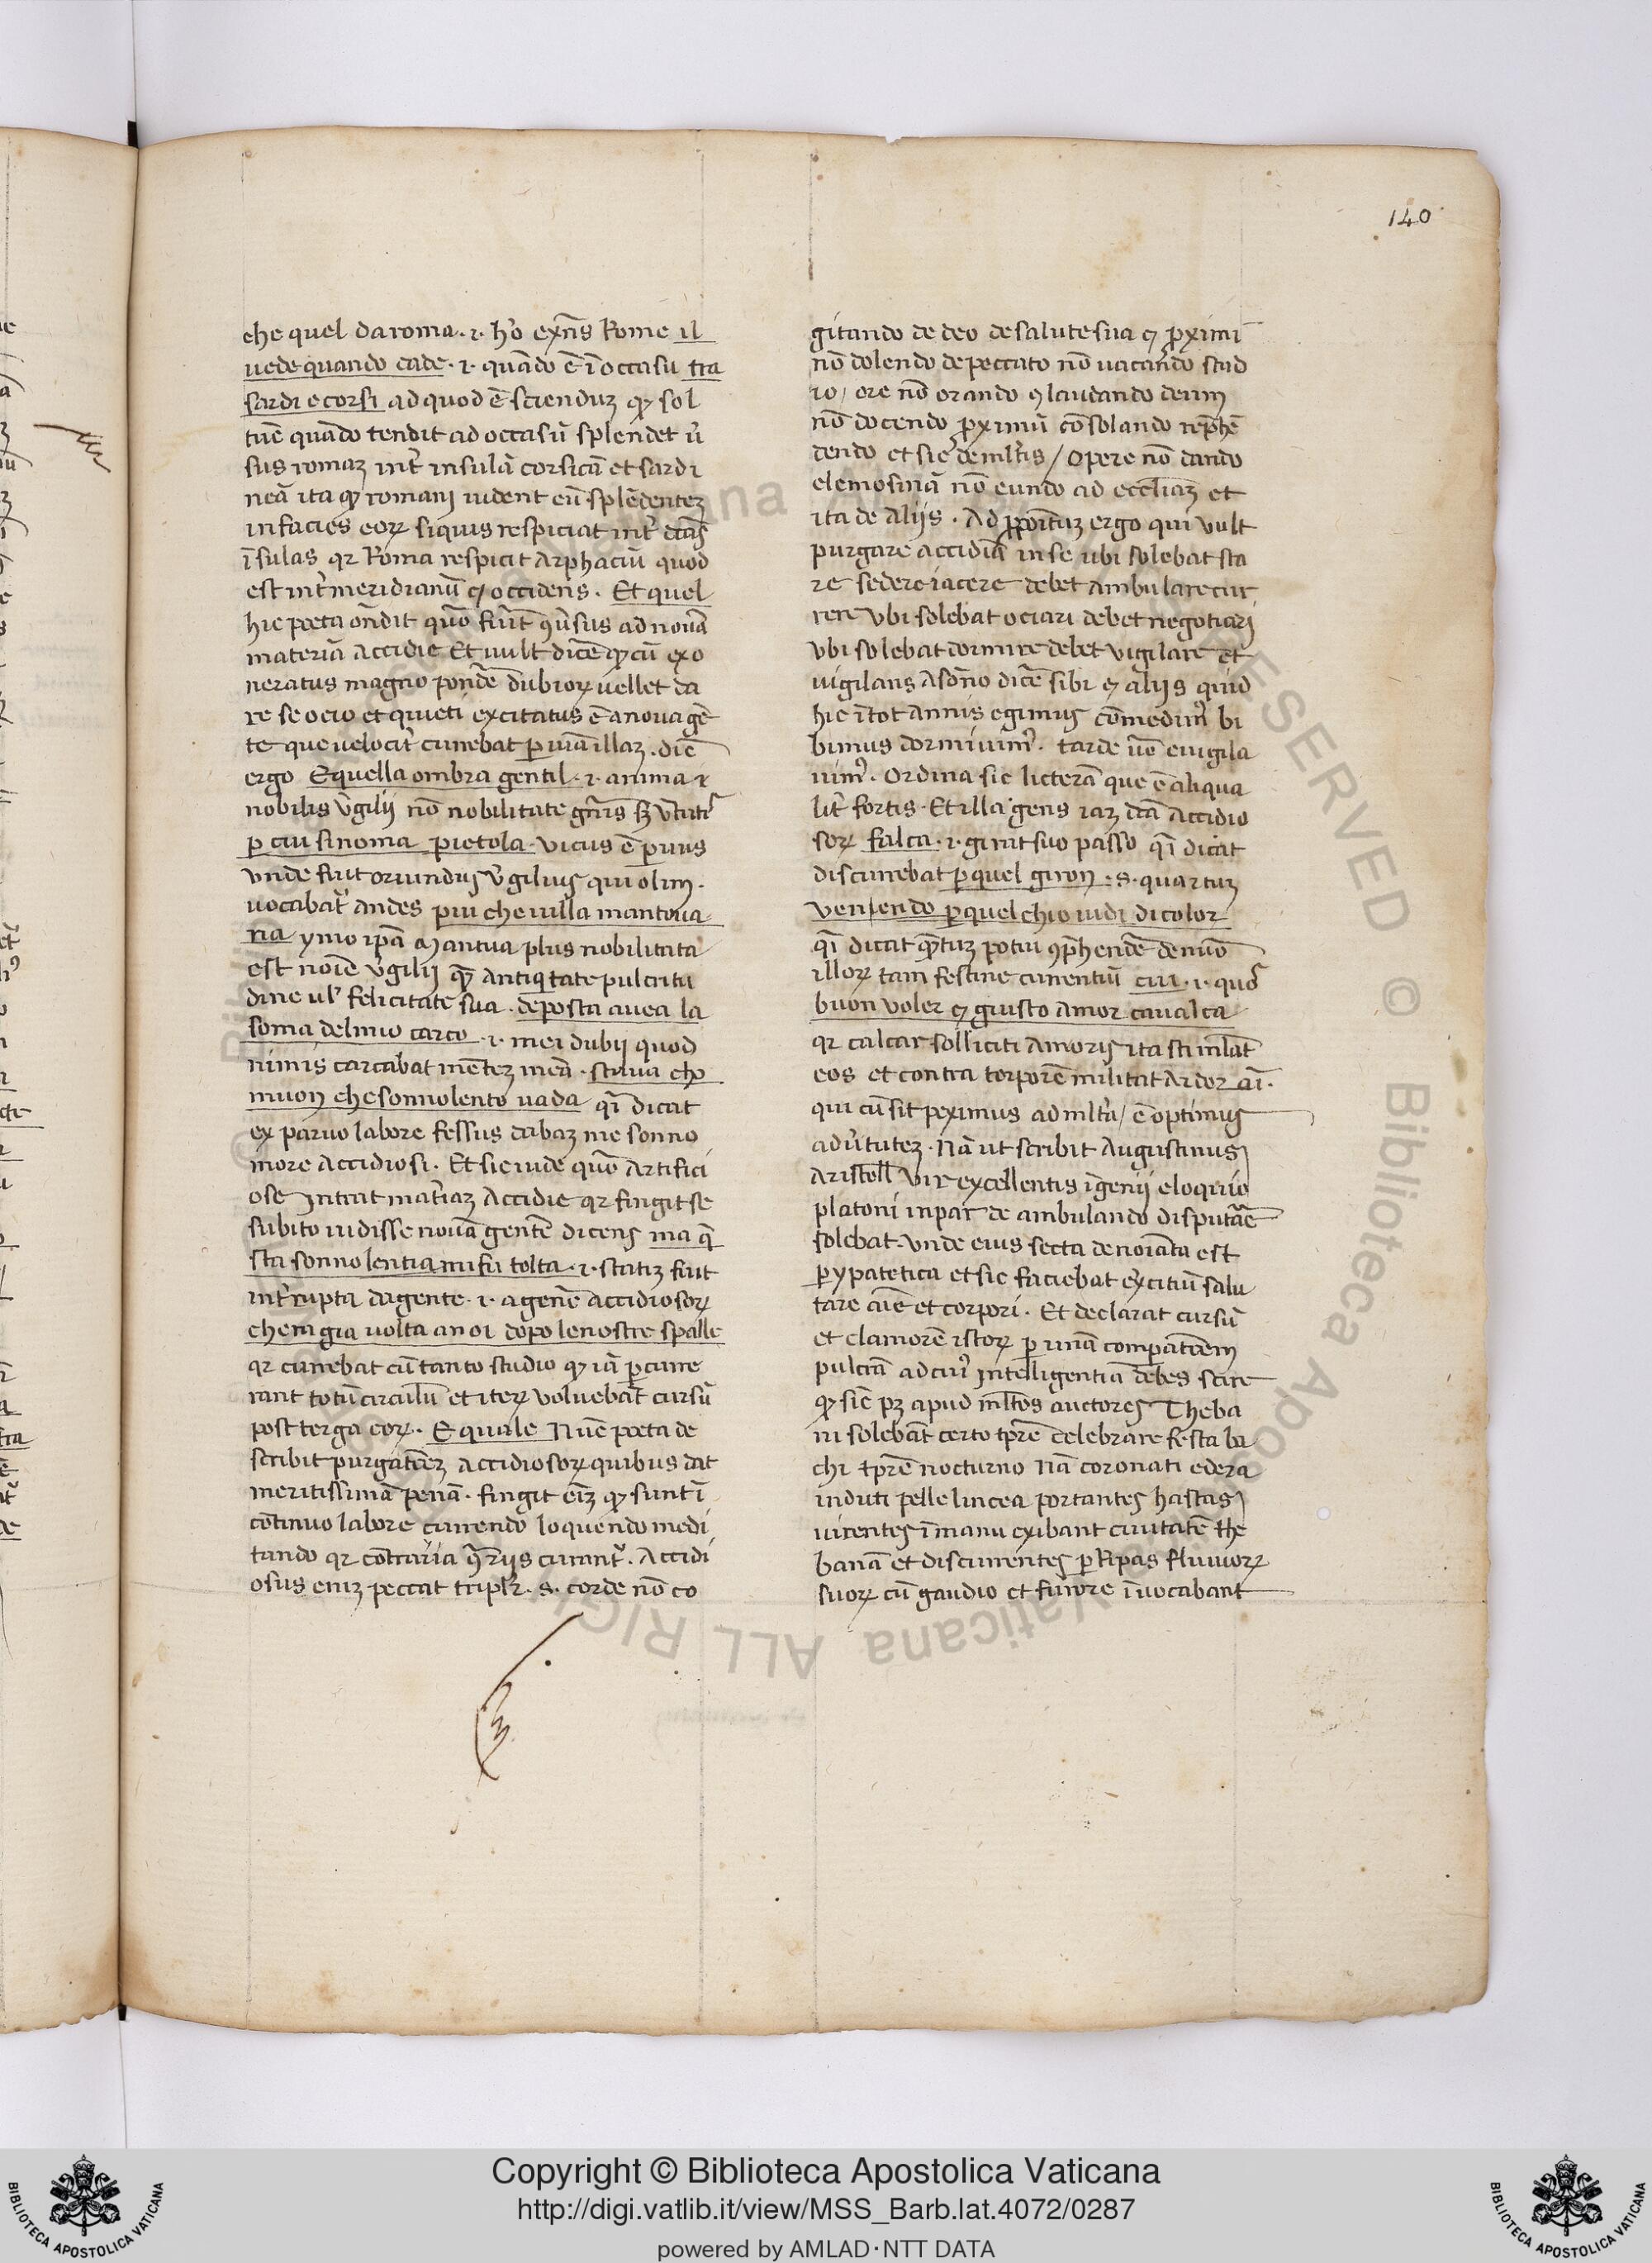 140
che quel da roma ·i· hō exn̄s Rome il
uede quando cade ·i· quādo ē ī occasu tra
sardi e corsi ad quod ē scienduȝ qꝫ sol
tūc quādo tendit ad occasū splendet ūs
sus romaȝ int̄ insulā corsicā et sardi
neā ita qꝫ romani uident eū splēdenteȝ
in facies eoꝝ siquis respiciat int̄ dc̄as
īsulas qr Roma respicit Arphaciū quod
est int̄ meridianū ⁊ occidens · Et quel
hic poeta ōndit quō fuit ꝯūsus ad nouā
materiā Accidie Et uult dicē qꝫ cū exo
neratus magno pondē dubioꝝ uellet da
re se ocio et quieti excitatus ē a noua gē
te que uelocit̄ currebat ꝑ uiā illaȝ · dic̄
ergo E quella ombra gentil ·i· anima ·i·
nobilis v̄gilij nō nobilitate gn̄is sȝ v̄tutis
per cui si noma pietola · vicus ē paruus
vnde fuit oriundus v̄gilius qui olim
uocabat̄ andes piu che uilla mantoua
na ymo ip̄a Mantua plus nobilitata
est noīe v̄gilij qȝ antiq̄tate pulcritu
dine ul̄ felicitate sua · deposta auea la
soma del mio carco ·i· mei dubij quod
nimis carcabat mēteȝ meā · staua cho
muon che sonnolento uada q̄i dicat
ex paruo labore fessus dabaȝ me sonno
more Accidiosi · Et sic uide quō Artifici
ose Intrat mat̄iaȝ Accidie qr fingit se
subito uidisse nouā gentē dicens ma q̄
sta sonnolentia mi fu tolta ·i· statiȝ fuit
int̄rupta da gente ·i· a genē accidiosoꝝ
chem gia uolta a noi dopo le nostre spalle
qr currebat cū tanto studio qꝫ iā ꝑcurre
rant totū circulū et iteꝝ voluebāt cursū
post terga eoꝝ · E quale Nūc poeta de
scribit purgatōeȝ Accidiosoꝝ quibus dat
meritissimā penā · fingit eīȝ qꝫ sunt ī
cōtinuo labore currendo loquendo medi
tando qr cōtraria ꝯ̄rijs curant̄ · Accidi
osus eniȝ peccat triplr̄ ·s· corde nō co
gitando de deo de salute sua ⁊ ꝓximi
nō dolendo de peccato nō uacando stud
io / ore nō orando ⁊ laudando deum
nō docendo ꝓximū cōsolando rep̄hē
dendo et sic de ml̄tis / Opere nō dando
elemosinā nō eundo ad eccl̄iaȝ et
ita de Alijs · Ad ꝓpoītuȝ ergo qui vult
purgare accidiā in se ubi solebat sta
re sedere iacere debet Ambulare cur
rere vbi solebat ociari debet negotiari
vbi solebat dormire debet vigilare et
uigilans A sōno dicē sibi ⁊ alijs quid
hic ī tot annis egimus cōmedimꝰ bi
bimus dormiuimꝰ · tarde ūo euigila
uimꝰ · Ordina sic licterā que ē aliqua
lit̄ fortis · Et illa gens iaȝ dc̄a Accidio
soꝝ falca ·i· girat suo passo q̄i dicat
discurrebat ꝑ quel giron ·s· quartuȝ
veniendo ꝑ quel chio uidi di color
q̄i dicat q̄ntuȝ potui ꝯp̄hendē de mō
illoꝝ tam festine currentiū cui ·i· quoꝝ
buon voler ⁊ giusto amor caualca
qr calcar solliciti Amoris ita stimlāt
eos et contra torporē militat Ardor aī
qui cū sit peximus ad ml̄ta / ē optimus
ad v̄tuteȝ · Nā ut scribit Augustinus
Aristotl̄l vir excellentis īgenij eloquio
platoni inpar de ambulando disputare
solebat · Vnde eius secta denoīata est
ꝑypatetica et sic faciebat ex̄citiū salu
tare aīe et corpori · Et declarat cursū
et clamorē istoꝝ ꝑ unā compatōem
pulcrā ad cuiꝰ Intelligentiā debes scire
qꝫ sic̄ pȝ apud ml̄tos auctores Theba
ni solebāt certo tp̄re celebrare festa ba
chi tp̄re nocturno Nā coronati edera
induti pelle lincea portantes hastas
uirentes ī manu exibant ciuitatē the
banā et discurrentes ꝑ Ripas fluuioꝝ
suoꝝ cū gaudio et furore īuocabant
Copyright © Biblioteca Apostolica Vaticana
http://digi.vatlib.it/view/MSS_Barb.lat.4072/0287
powered by AMLAD·NTT DATA